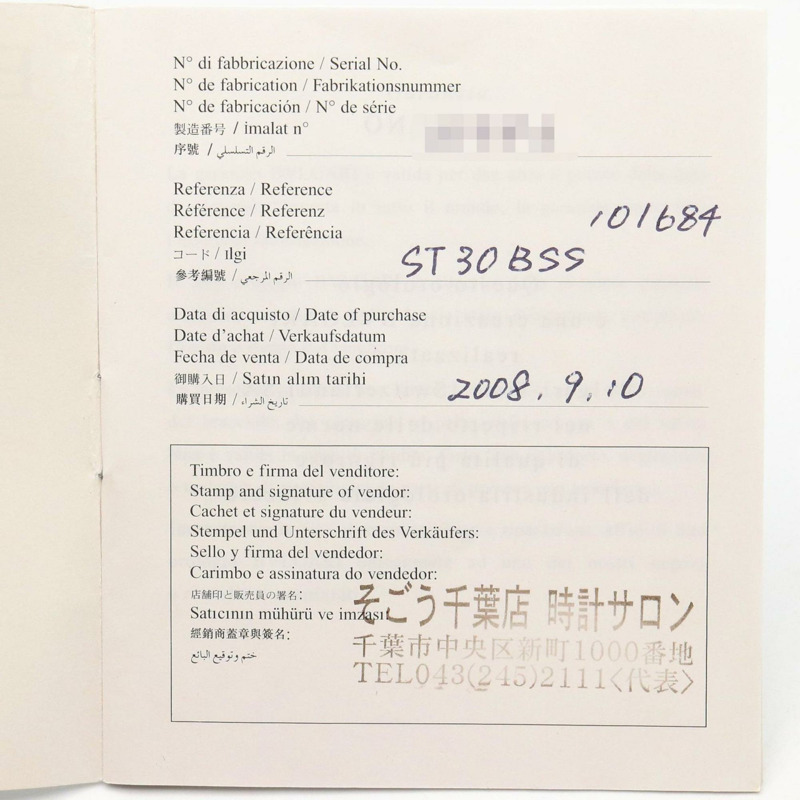 N° di fabbricazione / Serial No.
N° de fabrication / Fabrikationsnummer
N° de fabricación / N° de série
製造番号 / imalat n°
序號 / الرقم التسلسلي
Referenza / Reference
Référence / Referenz
Referencia / Referência
101684
コード / ılgi
ST30BSS
參考編號 / الرقم المرجعي
Data di acquisto / Date of purchase
Date d'achat / Verkaufsdatum
Fecha de venta / Data de compra
御購入日 / Satın alım tarihi
2008.9.10
購買日期 / تاريخ الشراء
Timbro e firma del venditore:
Stamp and signature of vendor:
Cachet et signature du vendeur:
Stempel und Unterschrift des Verkäufers:
Sello y firma del vendedor:
Carimbo e assinatura do vendedor:
店舗印と販売員の署名:
Satıcının mühürü ve imzası:
經銷商蓋章與簽名:
ختم وتوقيع البائع
そごう千葉店 時計サロン
千葉市中央区新町1000番地
TEL043(245)2111<代表>